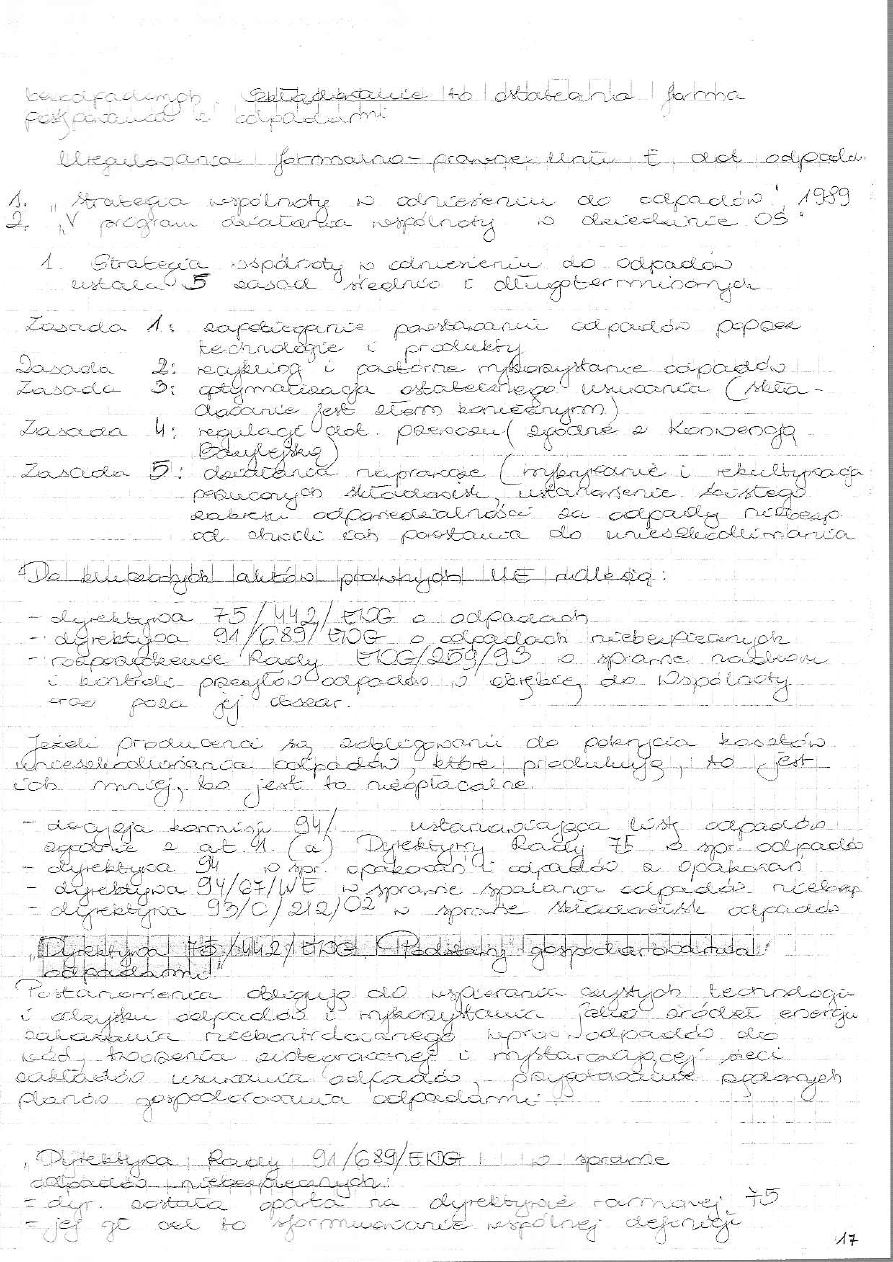 bezodpadowych. Składowanie to ostateczna forma
postępowania z odpadami
Uregulowania formalno-prawne Unii E. dot. odpadów
1. "Strategia wspólnoty w odniesieniu do odpadów", 1989
2. "V program działania wspólnoty w dziedzinie OŚ"
1. Strategia wspólnoty w odniesieniu do odpadów
ustala 5 zasad średnio i długoterminowych
Zasada 1: zapobieganie powstawaniu odpadów poprzez
technologie i produkty
Zasada 2: recykling i powtórne wykorzystanie odpadów
Zasada 3: optymalizacja ostatecznego usuwania (skła-
dowanie jest złem koniecznym)
Zasada 4: regulacje dot. przewozu (zgodne z Konwencją
Bazylejską)
Zasada 5: działania naprawcze (wykrywanie i rekultywacja
porzuconych składowisk, ustanowienie ścisłego
zakresu odpowiedzialności za odpady niebezp.
od chwili ich powstania do unieszkodliwiania
Do kluczowych aktów prawnych UE należą:
- dyrektywa 75/442/EKG o odpadach
- dyrektywa 91/689/EKG o odpadach niebezpiecznych
- rozporządzenie Rady EKG/259/93 w sprawie nadzoru
i kontroli przesyłów odpadów w obrębie, do Wspólnoty
oraz poza jej obszar.
Jeżeli producenci są zobligowani do pokrycia kosztów
unieszkodliwiania odpadów, które produkują, to jest
ich mniej, bo jest to nieopłacalne.
- decyzja komisji 94/ ustanawiająca listę odpadów
zgodnie z art. 1. (a) Dyrektywy Rady 75 w spr. odpadów
- dyrektywa 94 w spr. opakowań i odpadów z opakowań
- dyrektywa 94/67/WE w sprawie spalania odpadów niebezp
- dyrektywa 93/0/212/02 w sprawie składowisk odpadów
"Dyrektywa 75/442/EKG Podstawy gospodarowania
odpadami"
Postanowienia obligują do wspierania czystych technologii
i odzysku odpadów i wykorzystania jako źródeł energii
zakazania niekontrolowanego odpadów do
tworzenia zintegrowanej i wystarczającej sieci
zakładów usuwania odpadów, przygotowanie
planów gospodarowania odpadami.
"Dyrektywa Rady 91/689/EKG w sprawie
odpadów niebezpiecznych:
- dyr. została oparta na dyrektywie ramowej 75
- jej gł. cel to sformułowanie wspólnej definicji
17